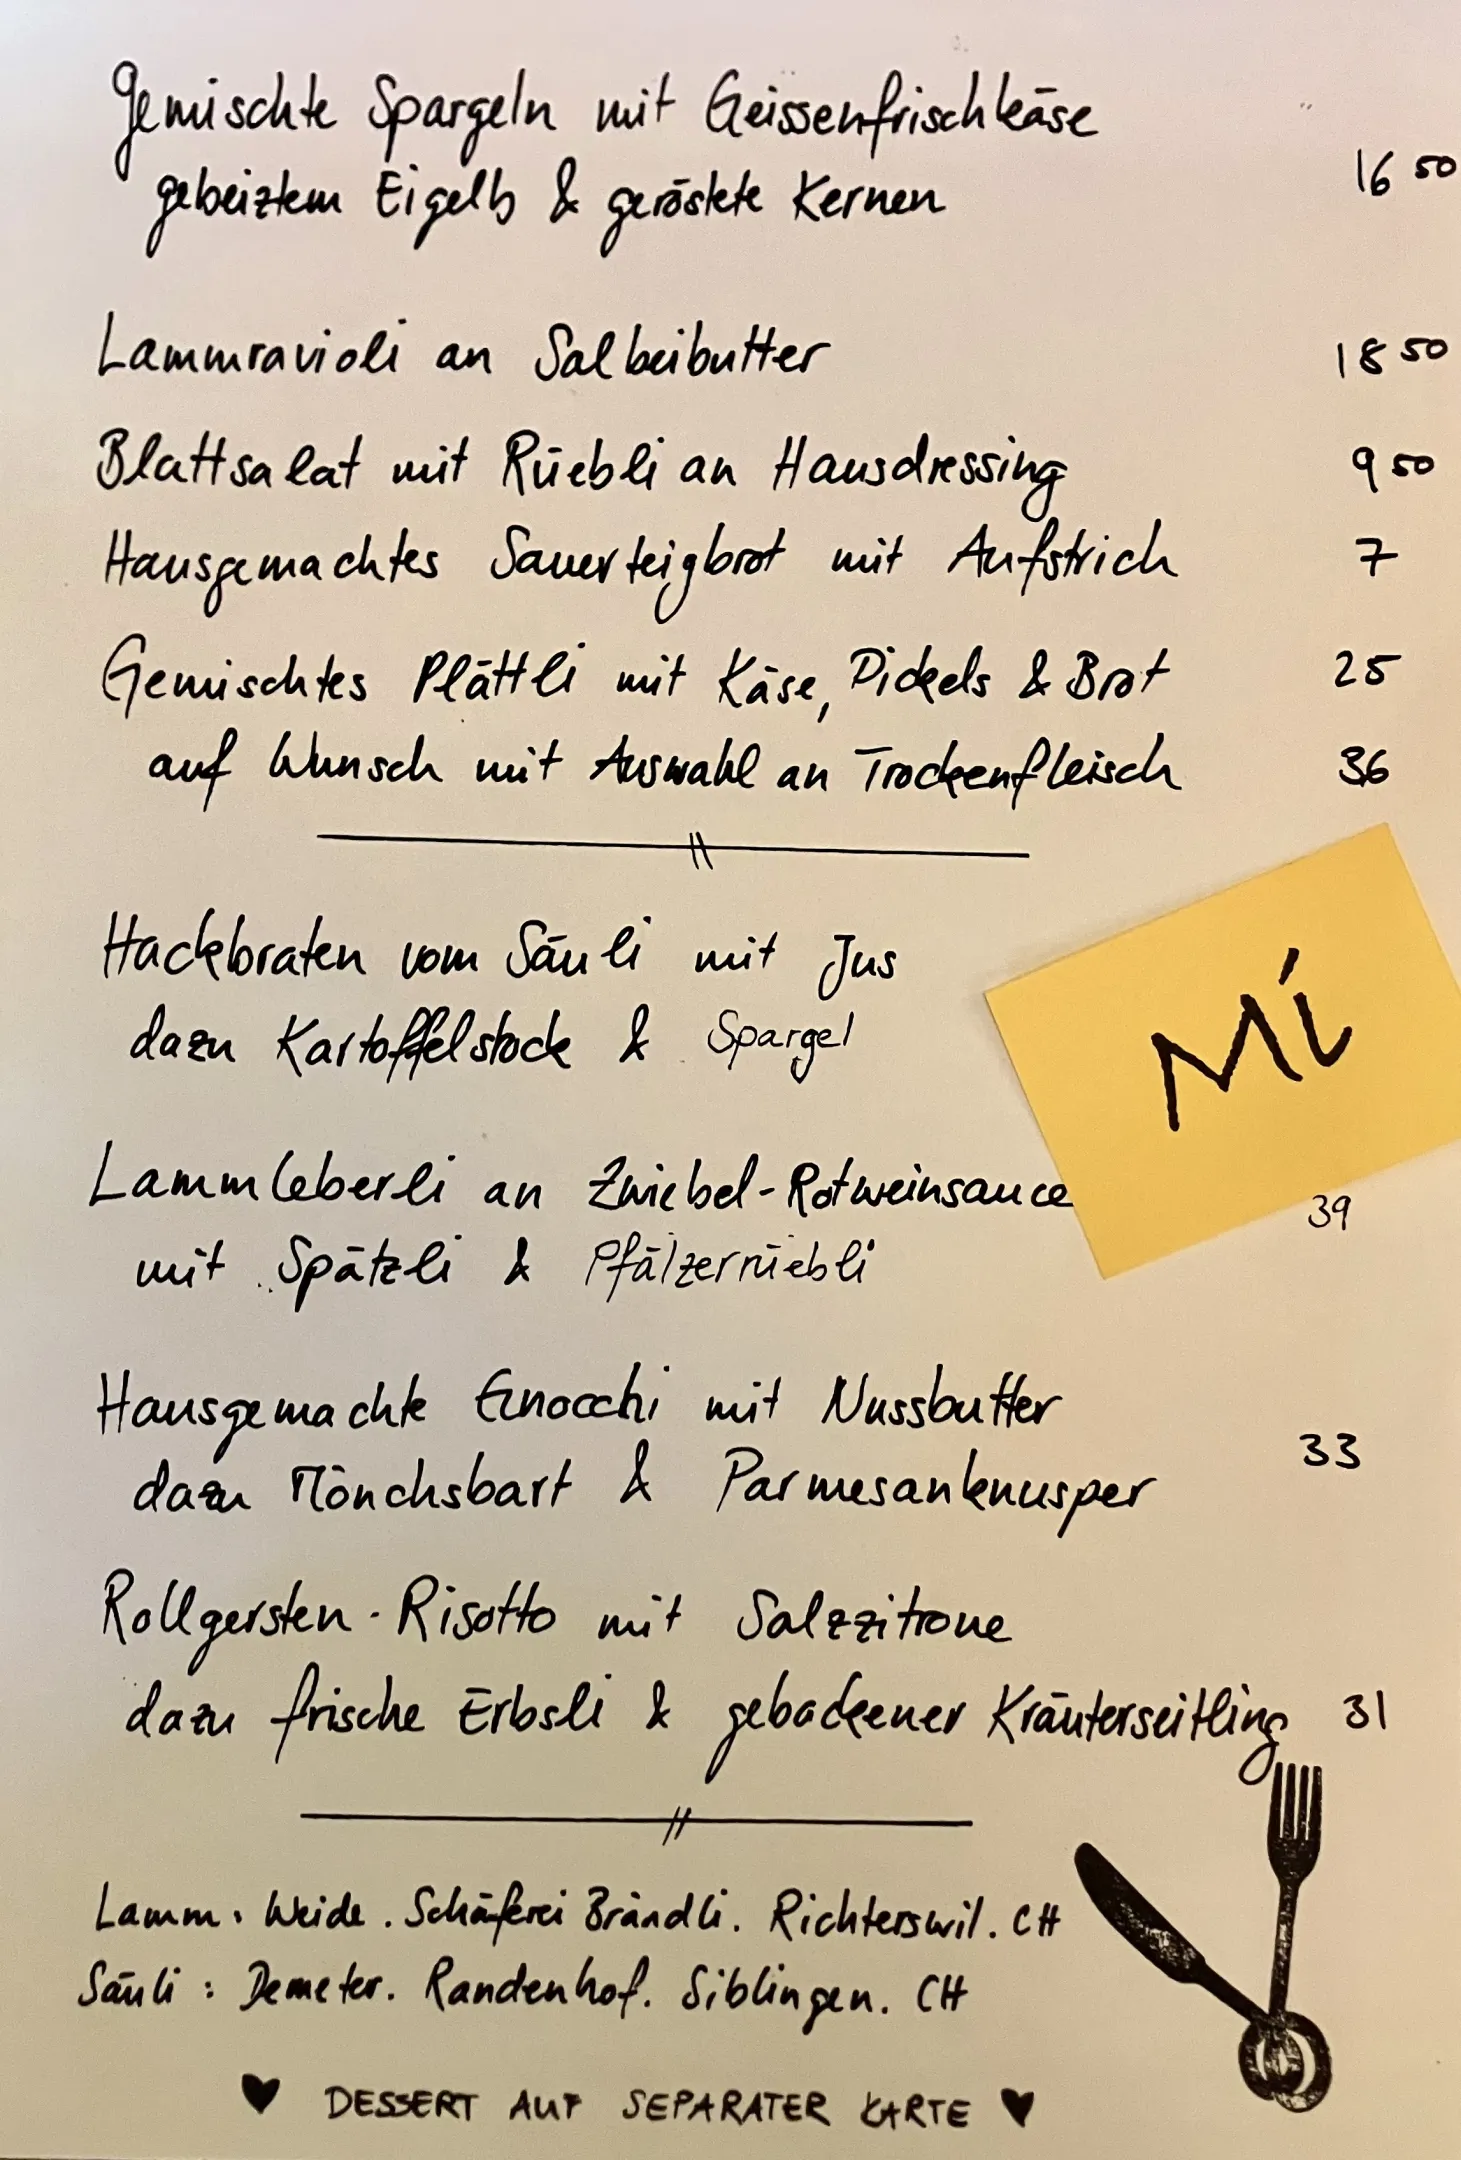 Gemischte Spargeln mit Geissenfrischkäse
gebeiztem Eigelb & geröstete Kernen 16 50
Lammravioli an Salbeibutter 18 50
Blattsalat mit Rüebli an Hausdressing 9 50
Hausgemachtes Sauerteigbrot mit Aufstrich 7
Gemischtes Plättli mit Käse, Pickels & Brot 25
auf Wunsch mit Auswahl an Trockenfleisch 36
Hackbraten vom Säuli mit Jus
dazu Kartoffelstock & Spargel
Mi
Lammleberli an Zwiebel-Rotweinsauce 39
mit Spätzli & Pfälzerrüebli
Hausgemachte Gnocchi mit Nussbutter 33
dazu Mönchsbart & Parmesanknusper
Rollgersten-Risotto mit Salzzitrone
dazu frische Erbsli & gebackener Kräuterseitling 31
Lamm: Weide. Schäferei Brändli. Richterswil. CH
Säuli: Demeter. Randenhof. Siblingen. CH
♥ DESSERT AUF SEPARATER KARTE ♥